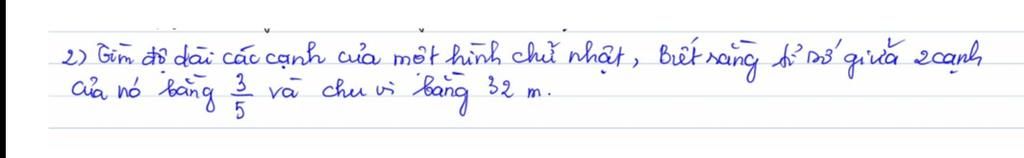 2) Tìm độ dài các cạnh của một hình chữ nhật, Biết rằng tỉ số giữa 2 cạnh
của nó bằng 3/5 và chu vi bằng 32 m.